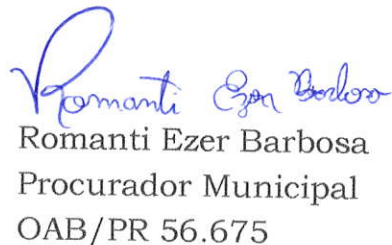 Romanti Ezer Barbosa
Romanti Ezer Barbosa
Procurador Municipal
OAB/PR 56.675